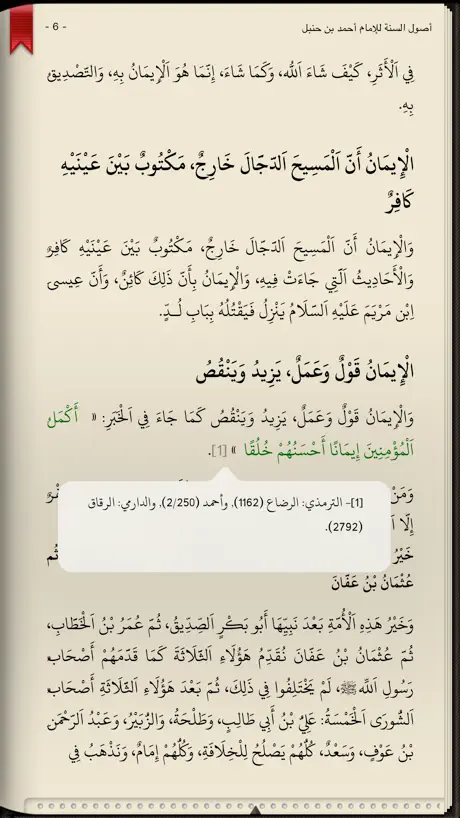 أصول السنة للإمام أحمد بن حنبل
- 6 -
فِي اَلْأَثَرِ، كَيْفَ شَاءَ اَللَّه، وَكَمَا شَاءَ، إِنَّمَا هُوَ اَلْإِيمَانُ بِهِ، وَالتَّصْدِيقِ
بِهِ.
الْإِيمَانُ أَنَّ اَلْمَسِيحَ اَلدَّجَالَ خَارِجٌ، مَكْتُوبٌ بَيْنَ عَيْنَيْهِ
كَافِرٌ
وَالْإِيمَانُ أَنَّ اَلْمَسِيحَ اَلدَّجَالَ خَارِجٌ، مَكْتُوبٌ بَيْنَ عَيْنَيْهِ كَافِرٌ
وَالْأَحَادِيثُ اَلَّتِي جَاءَتْ فِيهِ، وَالْإِيمَانُ بِأَنَّ ذَلِكَ كَائِنٌ، وَأَنَّ عِيسى
اِبْن مَرْيَمَ عَلَيْهِ اَلسَّلَامُ يَنْزِلُ فَيَقْتُلُهُ بِبَابِ لُــدٍّ.
الْإِيمَانُ قَوْلٌ وَعَمَلٌ، يَزِيدُ وَيَنْقُصُ
وَالْإِيمَانُ قَوْلٌ وَعَمَلٌ، يَزِيدُ وَيَنْقُصُ كَمَا جَاءَ فِي اَلْخَبَرِ: « أَكْمَلُ
اَلْمُؤْمِنِينَ إِيمَانًا أَحْسَنُهُمْ خُلُقًا » [1].
[1]- الترمذي: الرضاع (1162)، وأحمد (2/250)، والدارمي: الرقاق
(2792).
وَمَنْ
إِلَّا
خَيْرُ ثُم
عُثْمَانُ بْنُ عَفَّانَ
وَخَيْرُ هَذِهِ اَلْأُمَّةِ بَعْدَ نَبِيِّهَا أَبُو بَكْرٍ اَلصِّدِيقُ، ثُمَّ عُمَرُ بْنُ اَلْخَطَّابِ،
ثُمَّ عُثْمَانُ بْنُ عَفَانَ نُقَدِّمُ هَؤُلَاءِ اَلثَّلَاثَةَ كَمَا قَدَّمَهُمْ أَصْحَابُ
رَسُولِ اَللَّهِ ﷺ، لَمْ يَخْتَلِفُوا فِي ذَلِكَ، ثُمَّ بَعْدَ هَؤُلَاءِ اَلثَّلَاثَةِ أَصْحَابُ
اَلشُّورَى اَلْخَمْسَةُ: عَلِيُّ بْنُ أَبِي طَالِبٍ، وَطَلْحَةُ، وَالزُّبَيْرُ، وَعَبْدُ اَلرَّحْمَنِ
بْنُ عَوْفٍ، وَسَعْدٌ، كُلُّهُمْ يَصْلُحُ لِلْخِلَافَةِ، وَكُلُّهُمْ إِمَامٌ، وَنَذْهَبُ فِي